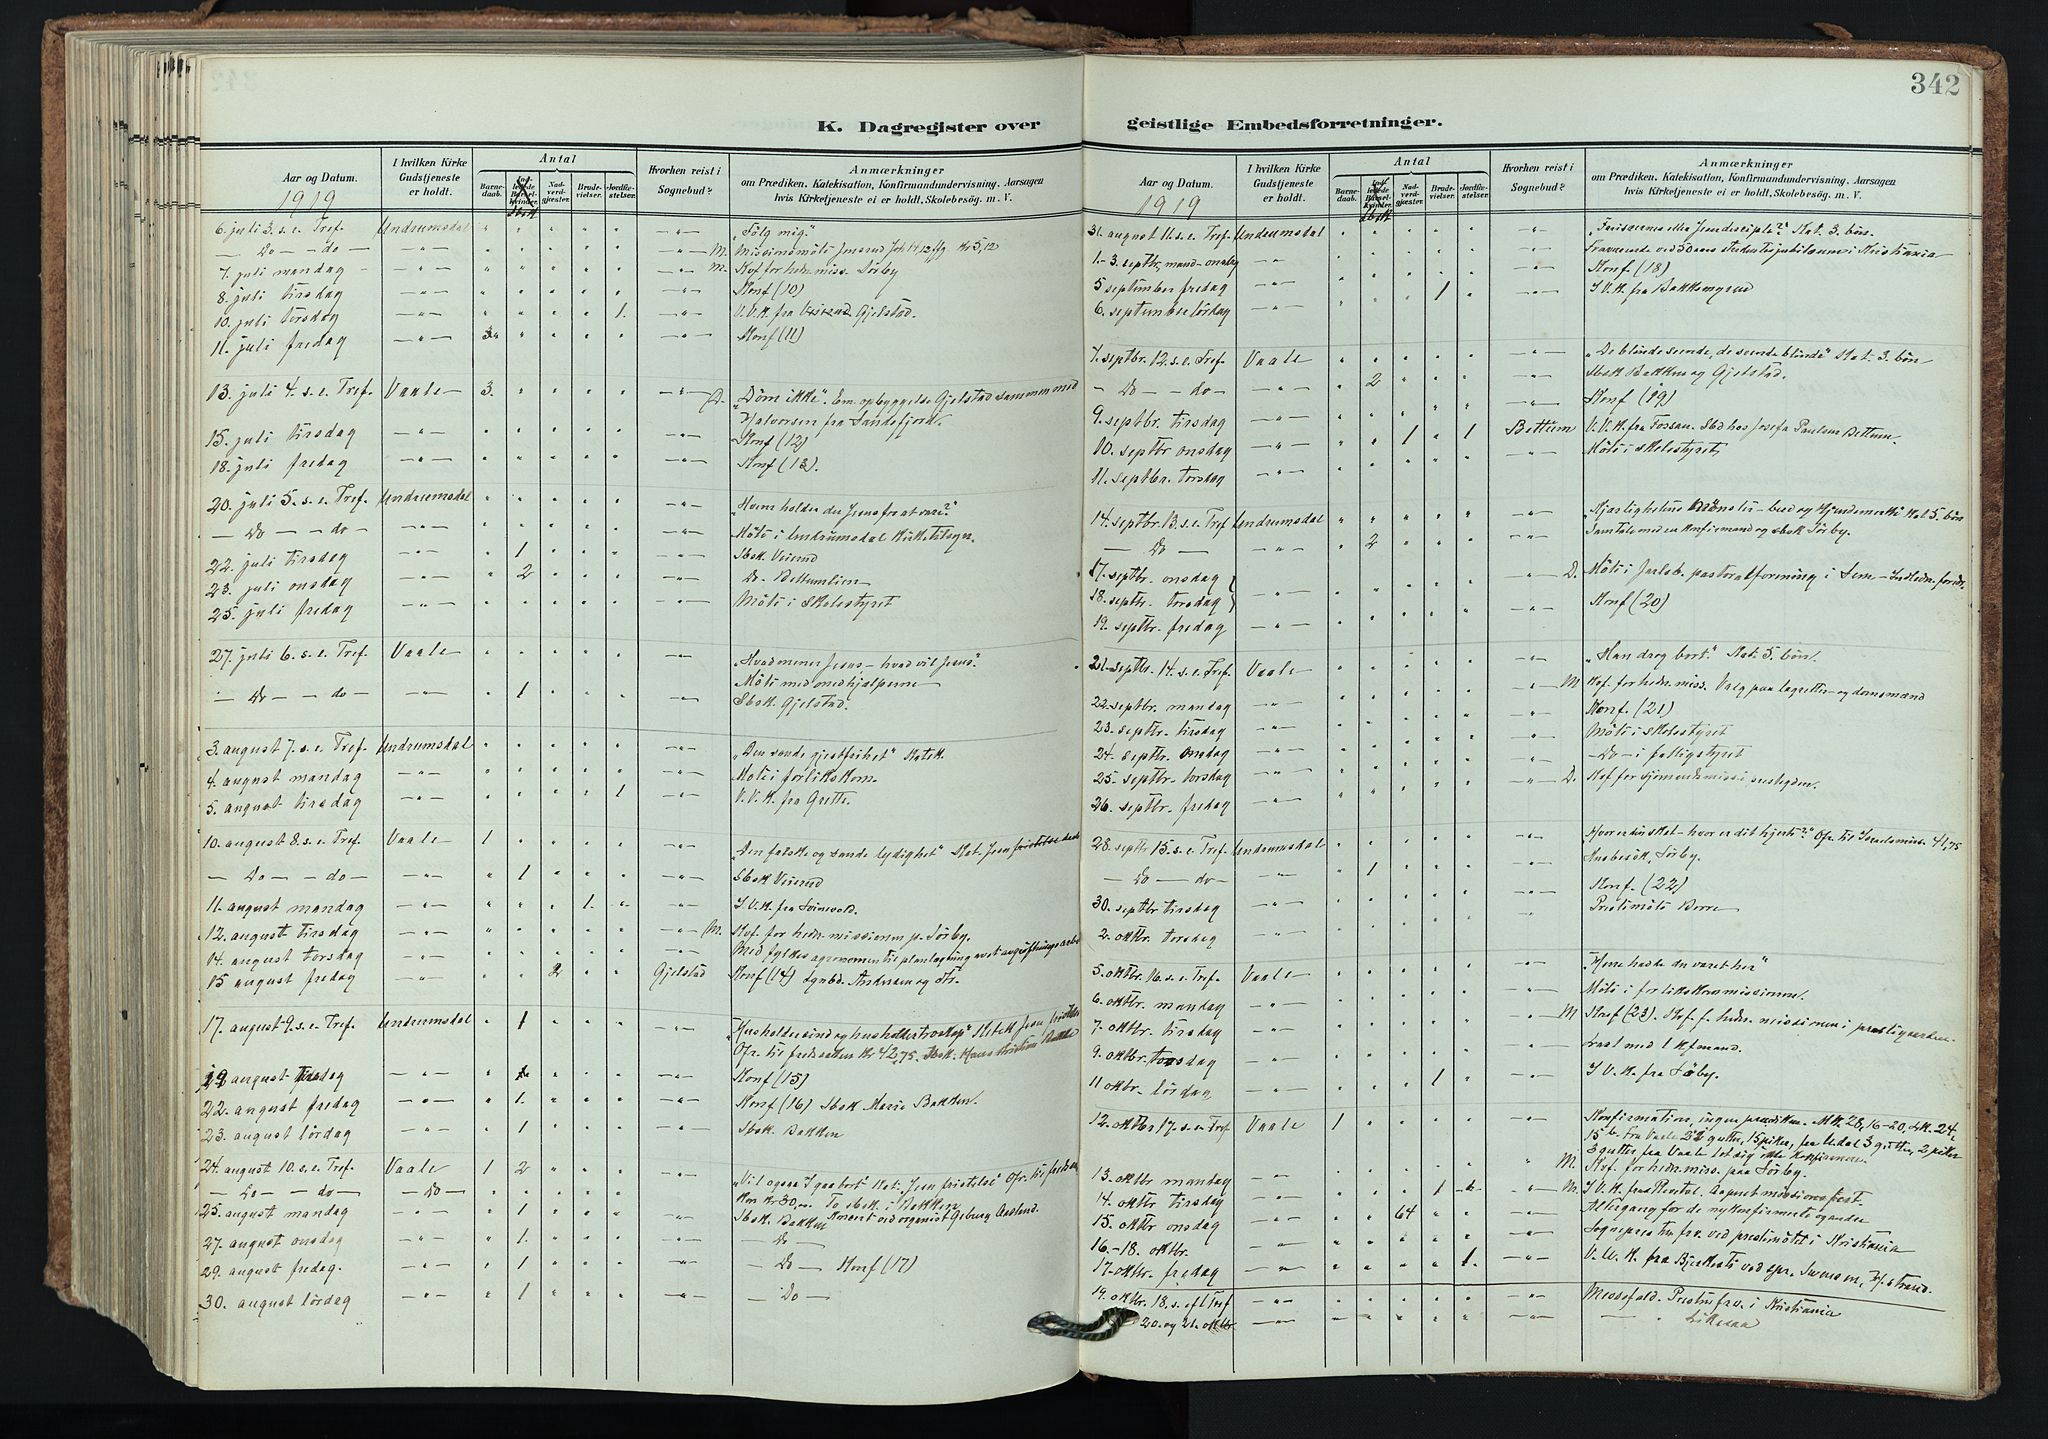 342
K. Dagregister over
geistlige Embedsforretninger.
Aar og Datum.
I hvilken Kirke Gudstjeneste er holdt.
Antal
Barnedaab.
Indledede Barselkvinder.
Nadverdgjæster.
Brudevielser.
Jordfæstelser.
Hvorhen reist i Sognebud?
Anmærkninger
om Prædiken. Katekisation, Konfirmandundervisning. Aarsagen
hvis Kirketjeneste ei er holdt. Skolebesög. m. V.
1919
Sbsk
6. juli 3. s. e. Tref. Undrumsdal " " " " " —"— "Følg mig."
— Do — do — —"— " " " " " —"— M. Missionsmöte Jensrud Joh 14,12 flg Kr 5,12
7. juli mandag —"— " " " " " —"— M. Kvf for hedn. miss. Sörby
8. juli tirsdag —"— " " " " " —"— Konf (10)
10. juli torsdag —"— " " " " 1. —"— V.V.K. fra Gjelstad.
11. juli fredag —"— " " " " —"— Konf (11)
13. juli 4. s. e. Tref. Vaale 3. " " " " —"— D. "Döm ikke". Em. opbyggelse Gjelstad sammen med
Halvorsen fra Sandefjord.
15. juli tirsdag —"— " " " " " —"— Konf (12)
18. juli fredag —"— " " " " " —"— Konf (13).
20. juli 5. s. e. Tref. Undrumsdal " " " " " —"— "Hvem holder du Jesus for at være?"
— Do — do — —"— " " " " " —"— Möte i Undrumsdal kirketilsyn.
22. juli tirsdag —"— " 1 " " " —"— Sbsk. Veierud
23. juli onsdag —"— " 2 " " " —"— Do. Bettumlien
25. juli fredag —"— " " " " " —"— Möte i Skolestyret
27. juli 6. s. e. Tref. Vaale " " " " " —"— "Hvad mener Jesus – hvad vil Jesus".
Möte med medhjelperne
— Do — do — —"— " 1 " " " —"— Sbsk. Gjelstad.
3. august 7. s. e. Tref. Undrumsdal " " " " " —"— "Den sande gjestfrihet" Katek.
4. august mandag —"— " " " " " —"— Möte i forlikskom.
5. august tirsdag —"— " " " " 1 —"— V.V.K. fra Grette.
10. august 8. s. e. Tref. Vaale 1 " " " " —"— "Den falske og sande lydighet" Kat. Jesu fristelse
— Do — do — —"— " 1 " " " —"— Sbsk Veierud
11. august mandag —"— " " " 1. " —"— I.V.K. fra Svinevold.
12. august tirsdag —"— " " " " " —"— M. Kvf. for hedn. missionen p. Sörby.
14. august torsdag —"— " " " " " —"— Med fylkesagronomen til planlægning av
15 august fredag —"— " " 2 " " Gjelstad Konf (14) Sgnbd. Andersen og fr.
17. august 9. s. e. Tref. Undrumsdal " 1 " " " —"— "Husholdersind og husholdertroskap" Katek Jesu
Ofr. til fredssaken Kr 42,75. Sbsk. Hans Kristian Bakke
19 august tirsdag —"— " " " " —"— Konf (15)
22. august fredag —"— " 1. " " " —"— Konf (16) Sbsk Marie Bakken.
23. august lördag —"— " 1 " " " —"— Sbsk. Bakken
24. august 10. s. e. Tref. Vaale 1 2 " " " —"— "Vil ogsaa I gaa bort" Kat. Jesu fristelse Ofr. til
— Do — — do — — Do — " " " " " —"— Kr 30,00 To sbsk. i Bakken
25. august mandag —"— " 1 " " " —"— Sbsk. Bakken Koncert ved organist Aaslund.
27. august onsdag —"— " 1. " " " —"— — Do —
29. august fredag. —"— " 1 " " " —"— — Do — Konf (17)
30. august lördag —"— " 1 " " " —"— — Do —
Aar og Datum.
I hvilken Kirke Gudstjeneste er holdt.
Antal
Barnedaab.
Indledede Barselkvinder.
Nadverdgjæster.
Brudevielser.
Jordfæstelser.
Hvorhen reist i Sognebud?
Anmærkninger
om Prædiken. Katekisation, Konfirmandundervisning. Aarsagen
hvis Kirketjeneste ei er holdt. Skolebesög. m. V.
1919
Sbsk
31. august 11. s. e. Tref Undrumsdal " " " " " —"— "Farisæernes eller Jesu disciple?" Kat. 3. bön.
1.-3. septbr, mand-onsdag —"— " " " " " —"— Fraværende ved studentejubilæum i Kristiania
5 september fredag —"— " " " " " —"— Konf (18)
6. september lördag —"— " " " 1 " —"— I.V.K. fra Bakkemyrud
7. septbr. 12. s. e. Tref. Vaale " " " " " —"— "De blinde seende, de seende blinde" Kat. 3. bön
— Do — — do — —"— " 2 " " " —"— Sbsk Bakken og Gjelstad.
9. septbr. tirsdag —"— " " " " " —"— Konf (19)
10. septbr onsdag —"— " " 1 " 1 Bettum V.V.K. fra Fossan. Sbd hos Josefa Paulsen Bettum.
11. septbr. torsdag —"— " " " " " —"— Möte i Skolestyret,
14. septbr. 13. s. e. Tref Undrumsdal " " " " " —"— "Kjærlighetens mönster – bud og kjendemerke Kat 5. bön
— Do — —"— " 2 " " " —"— Samtale med en konfirmand og sbsk Sörby.
17. septbr. onsdag —"— " " " " " —"— D. Möte i Jarlsb. pastoralforening i Sem – Indledn. foredr.
18. septbr. torsdag —"—
19. septbr. fredag —"— " " " " " —"— Konf (20)
21. septbr. 14. s. e. Tref. Vaale " " " " " —"— "Han drog bort." Kat. 5. bön.
22. septbr. mandag —"— " " " " " —"— M Kvf. for hedn. miss. Valg paa lagrettes- og domsmænd
23. septbr. tirsdag —"— " " " " " —"— Konf. (21)
24. septbr. onsdag —"— " " " " " —"— Möte i skolestyret
25. septbr. torsdag —"— " " " " " —"— — Do — i fattigstyret
26. septbr. fredag —"— " " " " " —"— D. Kvf for sjömandsmiss. i nestegden.
28. septbr 15. s. e. Tref. Undrumsdal " " " " " —"— Hvor er din skat – hvor er dit hjerte?" Ofr. til Israelsmiss. 41,75
— Do — do — —"— " 1 " " " —"— Husbesök, Sörby.
30. septbr tirsdag —"— " " " " " —"— Konf. (22)
2. oktbr. torsdag —"— " " " " " " Prestemöte Borre
5. oktbr. 16. s. e. Tref. Vaale " " " " " —"— "Herre hadde du været her"
6. oktbr. mandag —"— " " " " " —"— Möte i forlikskommissionen.
7. oktbr. tirsdag —"— " " " " " —"— M Konf (23). Kvf. f. hedn. missionen i prestegaarden.
9. oktbr. torsdag —"— " " " " " —"— med 1 kfmand.
11 oktbr. lördag —"— " " " 1 " —"— I.V.K. fra Söby.
12. oktbr 17. s. e. Tref Vaale 1 " " " " —"— Konfirmation, ingen prædiken. Mt. 28, 16-20. Lk. 24,
15 b. fra Vaale 22 gutter, 15 piker, fra Udal 3 gutter, 2 piker
3 gutter fra Vaale lot sig ikke konfirmere
13. oktbr mandag —"— " " " " " " M. Kvf. for hedn. miss. paa Sörby.
14. oktbr tirsdag —"— " " " 1 " —"— M. I.V.K. fra Revetal. Aapent missionsfest.
15. oktbr onsdag —"— " " 64 " " —"— Altergang for de nykonfirmerte og andre
16.-18. oktbr. —"— " " " " " —"— Sogneprest frav. ved prestemötet i Kristiania
17. oktbr. fredag —"— " " " " 1. —"— V.U.K. fra Bjerkests ved spr. Swensen, Hf.strand.
19. oktbr. 18. s. eft Tref —"— " " " " " —"— Messefald. Presten frv. i Kristiania
20. og 21. oktbr. —"— " " " " " —"— — " — Likesaa